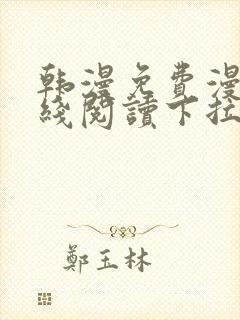 韩漫免费漫
线阅读下拉
鄭玉林